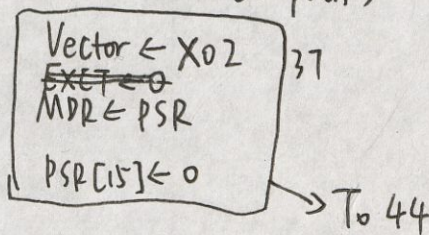 Vector ← X02
37
EXCT ← 0
MDR ← PSR
PSR[15] ← 0
To 44